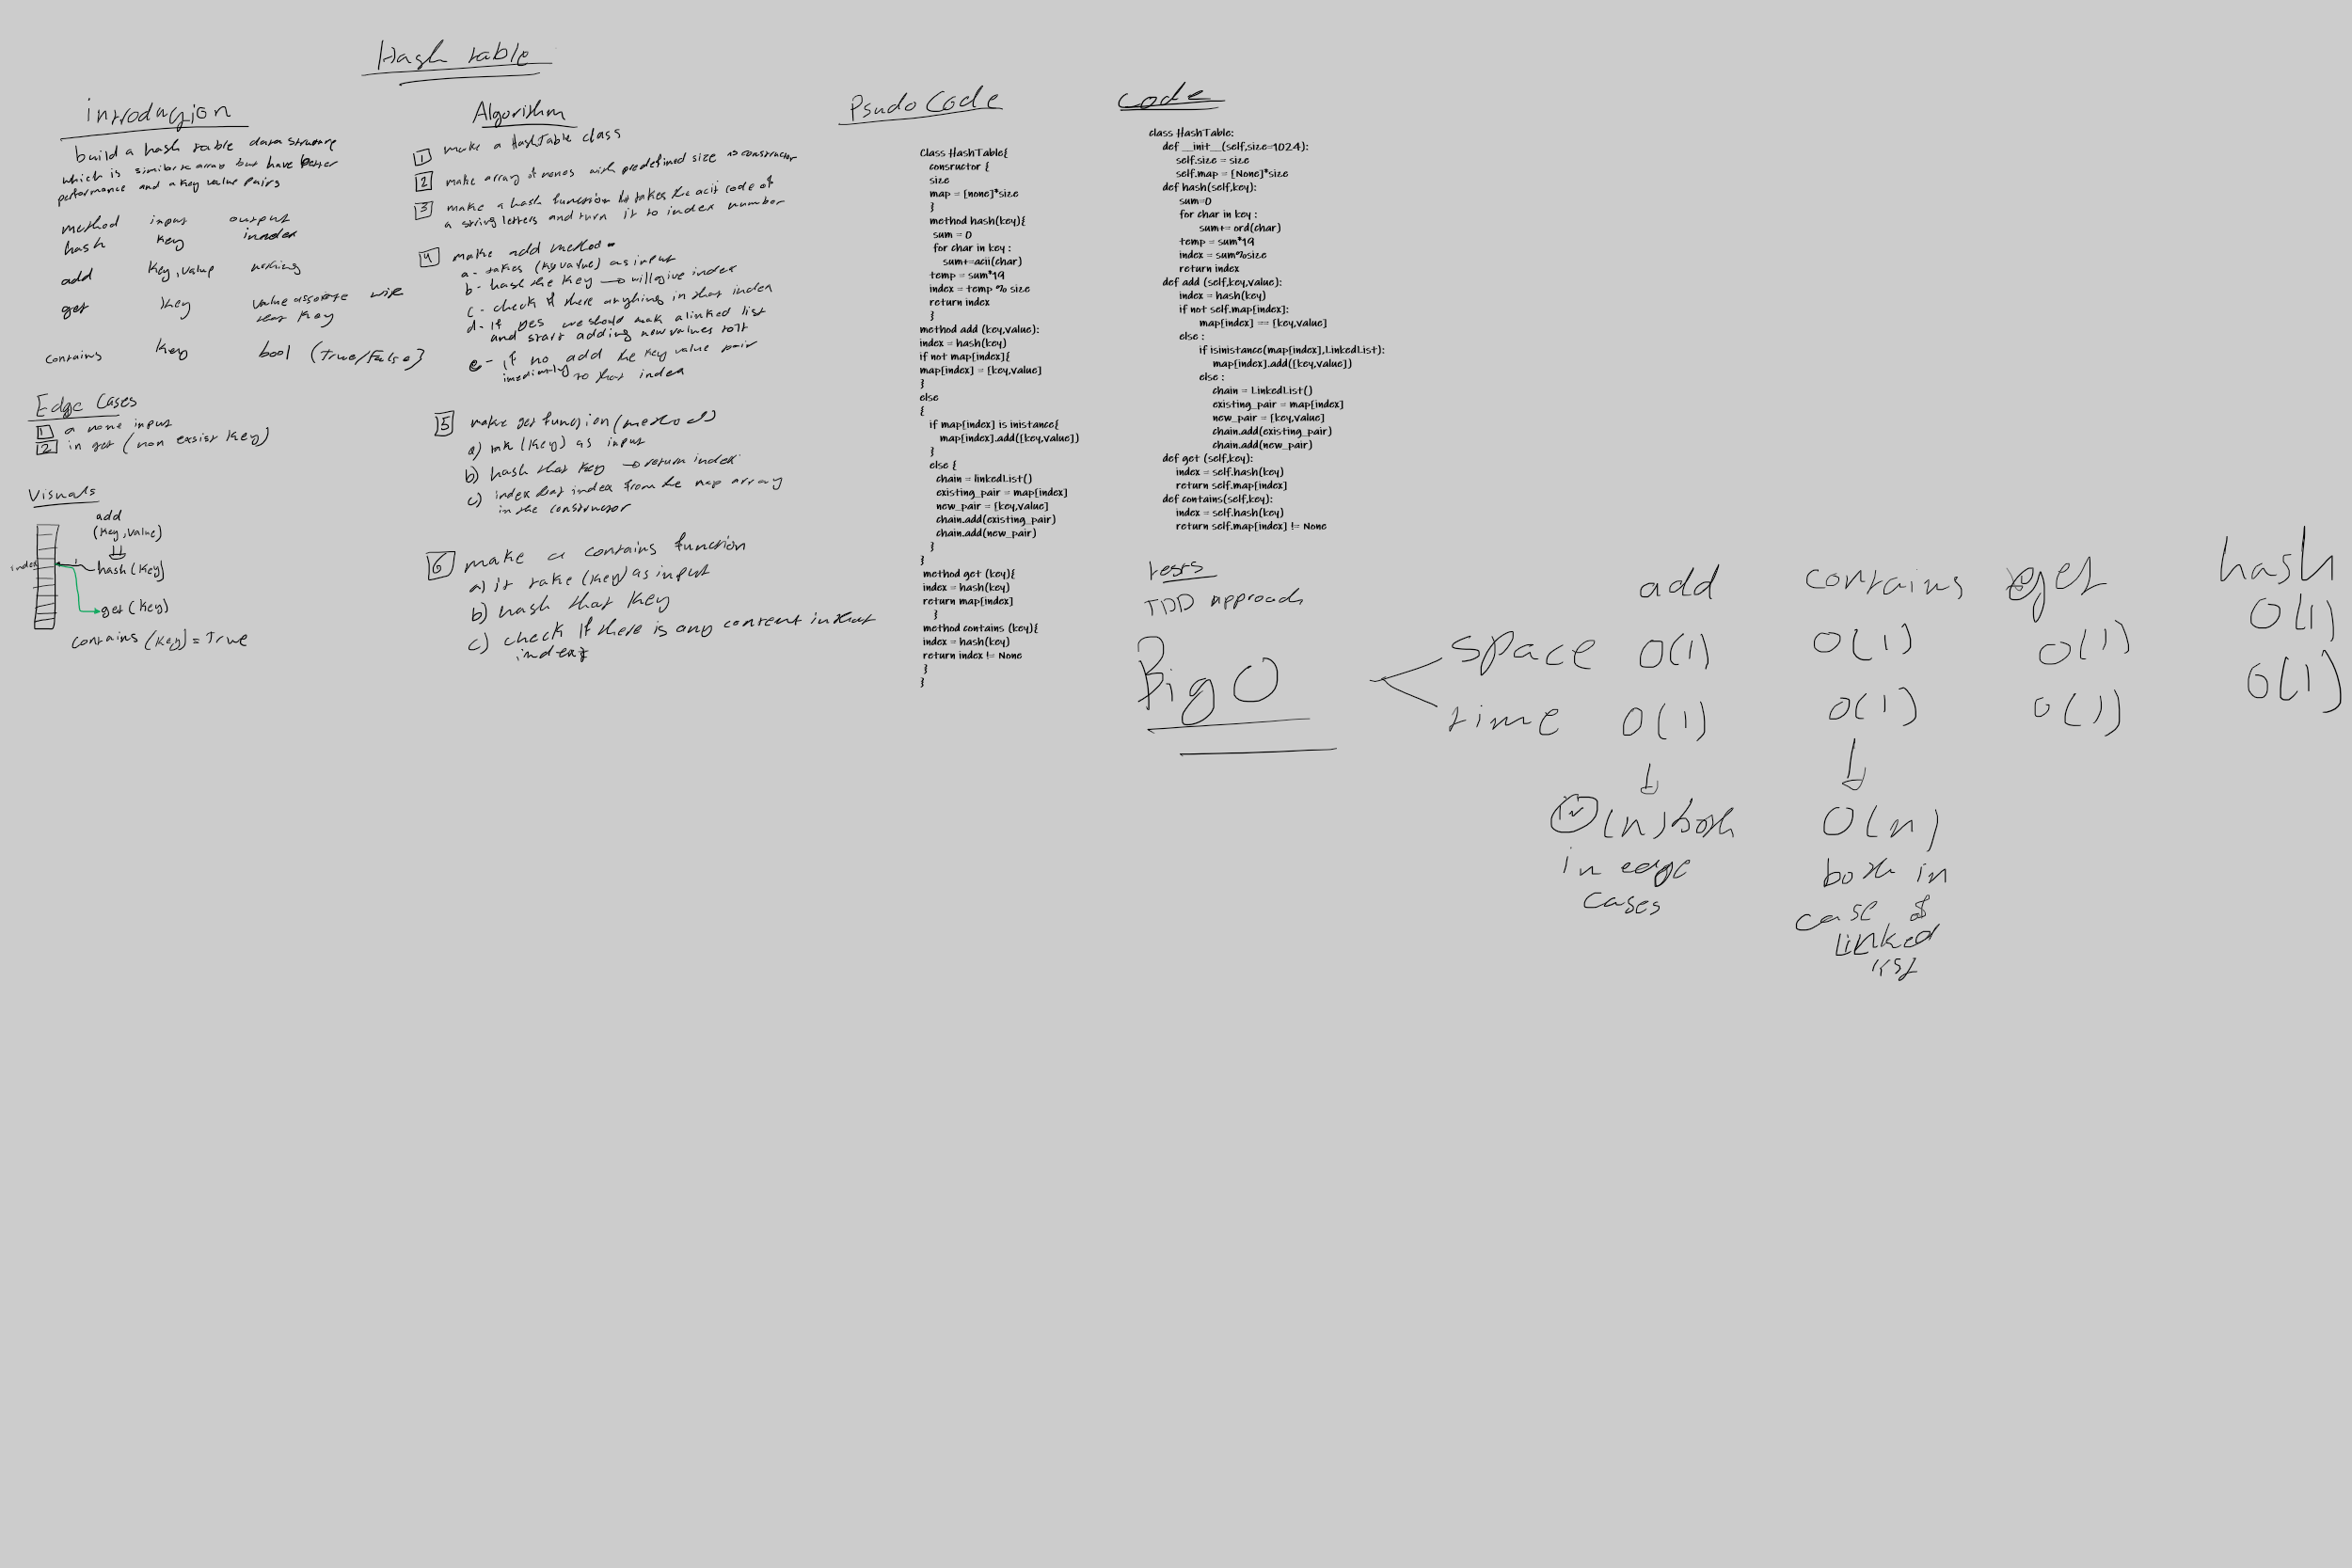 Hash table
introducjion
build a hash table data structure
which is similar to array but have better
performance and a key value pairs
method input output
hash key inndex
add key, value nothing
get key value assosiate with
that key
contains key bool (True/False)
Edge Cases
1 a none input
2 in get (non exsist key)
Visuals
add
(key, value)
index
hash (key)
get (key)
contains (key) = True
Algorithm
1 make a HashTable class
2 make array of nones with predefined size as constructor
3 make a hash function takes the acii code of
a string letters and turn it to index number
4 make add method
a- takes (key value) as input
b- hash the key → will give index
c- check if there anything in that index
d- if yes we should mak a linked list
and start adding new values to it
e- if no add the key value pair
imediantly to that index
5 make get funcjion (method)
a) tak (key) as input
b) hash that key → return index
c) index that index from the map array
in the constructor
6 make a contains function
a) it take (key) as input
b) hash that key
c) check if there is any content in that
index
Psudo Code
Class HashTable{
consructor {
size
map = [none]*size
}
method hash(key){
sum = 0
for char in key :
sum+=acii(char)
temp = sum*19
index = temp % size
return index
}
method add (key,value):
index = hash(key)
if not map[index]{
map[index] = [key,value]
}
else
{
if map[index] is inistance{
map[index].add([key,value])
}
else {
chain = linkedList()
existing_pair = map[index]
new_pair = [key,value]
chain.add(existing_pair)
chain.add(new_pair)
}
}
method get (key){
index = hash(key)
return map[index]
}
method contains (key){
index = hash(key)
return index != None
}
}
code
class HashTable:
def __init__(self,size=1024):
self.size = size
self.map = [None]*size
def hash(self,key):
sum=0
for char in key :
sum+= ord(char)
temp = sum*19
index = sum%size
return index
def add (self,key,value):
index = hash(key)
if not self.map[index]:
map[index] == [key,value]
else :
if isinistance(map[index],LinkedList):
map[index].add([key,value])
else :
chain = LinkedList()
existing_pair = map[index]
new_pair = [key,value]
chain.add(existing_pair)
chain.add(new_pair)
def get (self,key):
index = self.hash(key)
return self.map[index]
def contains(self,key):
index = self.hash(key)
return self.map[index] != None
tests
TDD approach
Big O
add contains get hash
space O(1) O(1) O(1) O(1)
time O(1) O(1) O(1) O(1)
(n) both
in edge
cases
O(n)
both in
case of
Linked
list